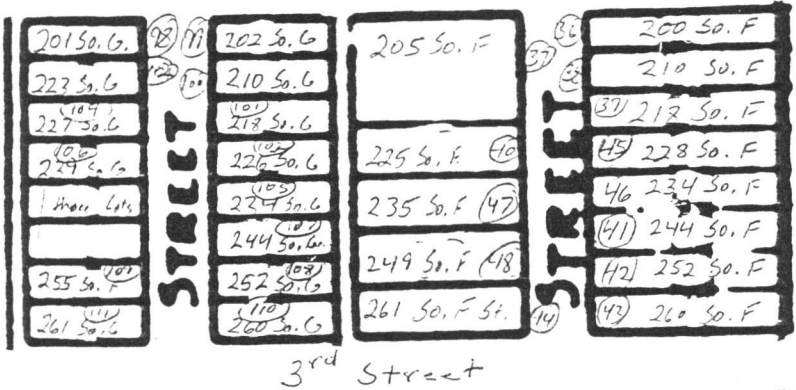 201 So. G.
98
223 So. G
102
104
227 So. G
106
229 So. G
255 So. F
109
111
261 So. G
STREET
99
100
202 So. G
210 So. G
101
218 So. G
226 So. G
105
234 So. G
244 So. G
252 So. G
108
110
260 So. G
205 So. F
225 So. F 40
235 So. F 47
249 So. F 48
261 So. F St.
STREET
36
37
38
44
200 So. F
210 So. F
37 218 So. F
45 228 So. F
46 234 So. F
41 244 So. F
42 252 So. F
43 260 So. F
3rd Street